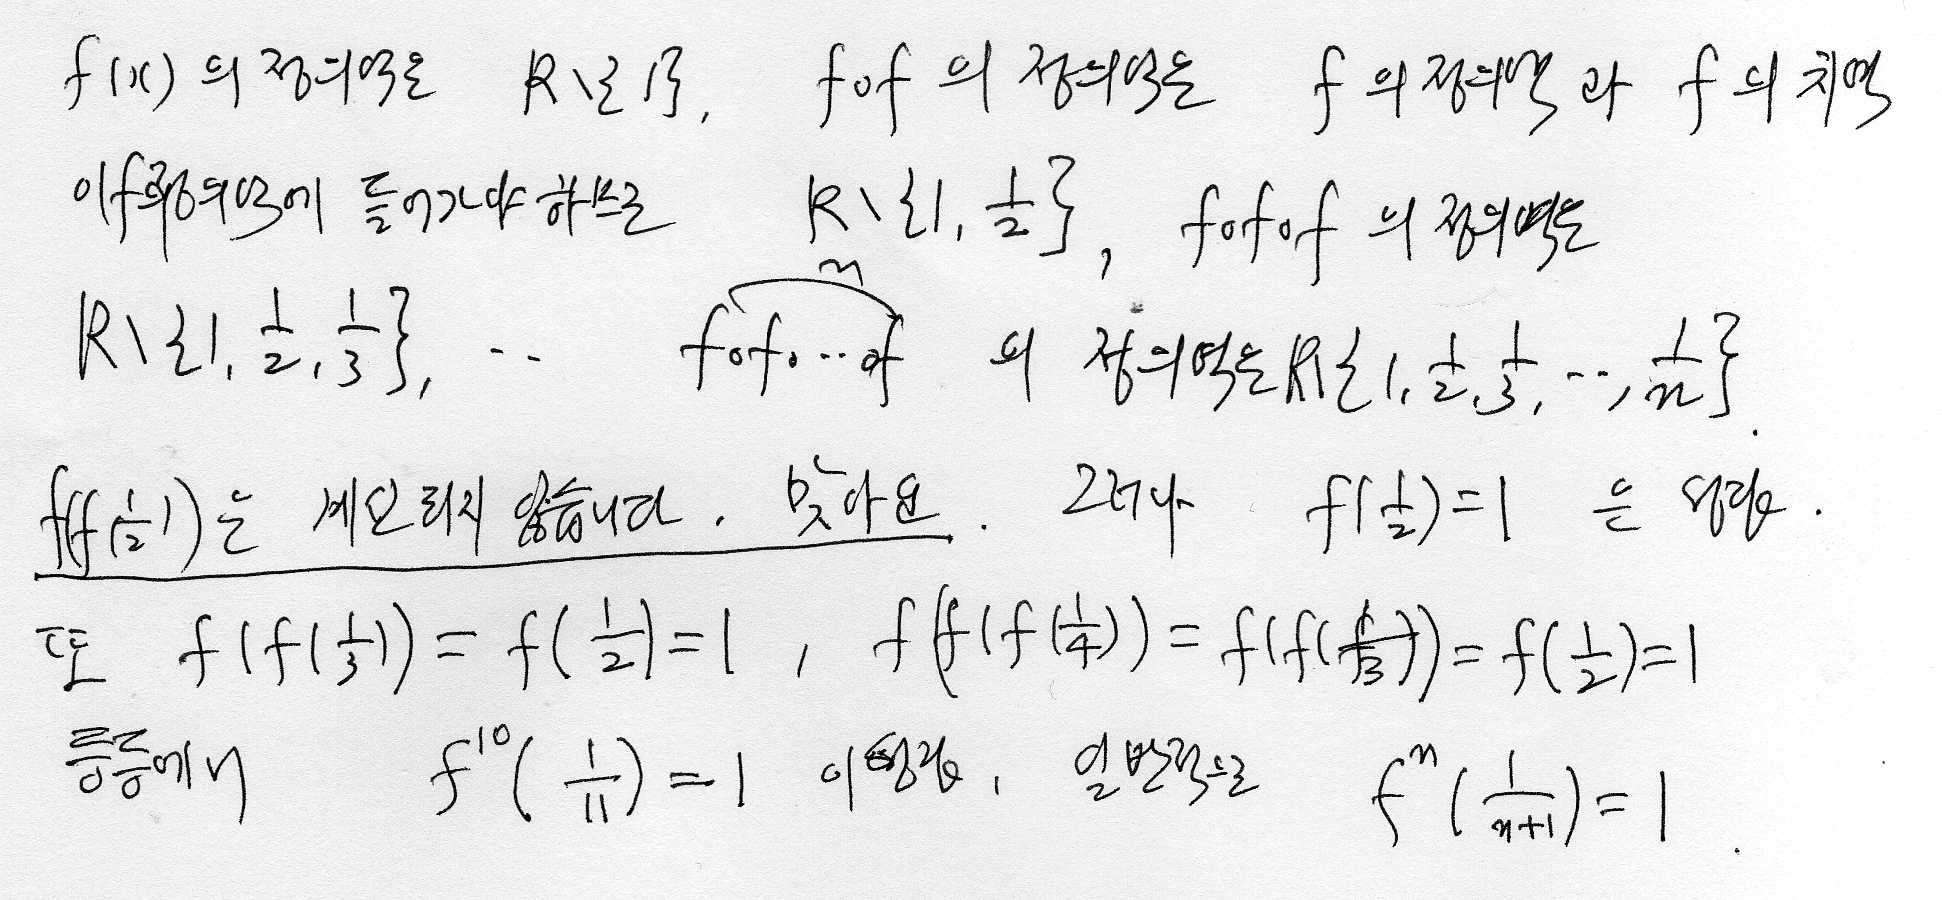 f(x) 의 정의역은 R\{1}, fof 의 정의역은 f 의 정의역 과 f 의 치역
이 f의 정의역에 들어가야 하므로 R\{1, 1/2}, fofof 의 정의역은
R\{1, 1/2, 1/3}, ·· fofo···of n 의 정의역은 R\{1, 1/2, 1/3, ··, 1/n}.
f(f(1/2)) 는 계산되지 않습니다. 맞아요. 그러나 f(1/2)=1 은 성립.
또 f(f(1/3)) = f(1/2)=1, f(f(f(1/4)) = f(f(1/3)) = f(1/2)=1
등등에서 f^10(1/11) = 1 이 성립, 일반적으로 f^n(1/(n+1)) = 1.